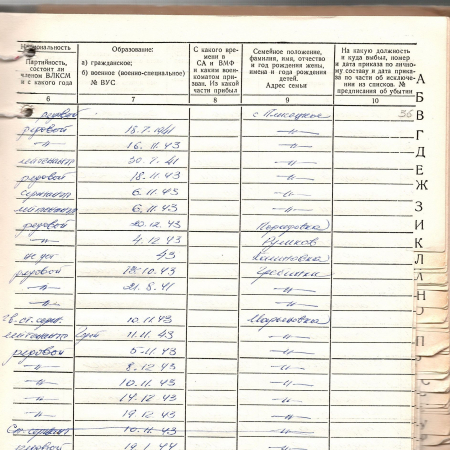 Национальность
Партийность, состоит ли членом ВЛКСМ и с какого года
Образование:
а) гражданское;
б) военное (военно-специальное)
№ ВУС
С какого времени в СА и ВМФ и каким военкоматом призван. Из какой части прибыл
Семейное положение, фамилия, имя, отчество и год рождения жены, имена и года рождения детей.
Адрес семьи
На какую должность и куда выбыл, номер и дата приказа по личному составу и дата приказа по части об исключении из списков. № предписания об убытии
6 7 8 9 10
рядовой 36
рядовой 15.7.1941 -"-
-"- 16.11.43 -"-
лейтенант 30.7.41 -"-
рядовой 18.11.43 -"-
сержант 6.11.43 -"-
лейтенант 6.11.43 -"-
рядовой 20.12.43
-"- 4.12.43
43 Калиновка
рядовой 10.43
-"- 21.8.41 -"-
-"- -"-
Гв. ст. серж. 10.11.43
лейтенант 11.11.43 -"-
рядовой 5.11.43 -"-
-"- 8.12.43 -"-
-"- 10.11.43 -"-
-"- 14.12.43 -"-
-"- 19.12.43 -"-
Ст. сержант 10.11.43 -"-
рядовой 19.1.44 -"-
А
Б
В
Г
Д
Е
Ж
З
И
К
Л
Н
О
П